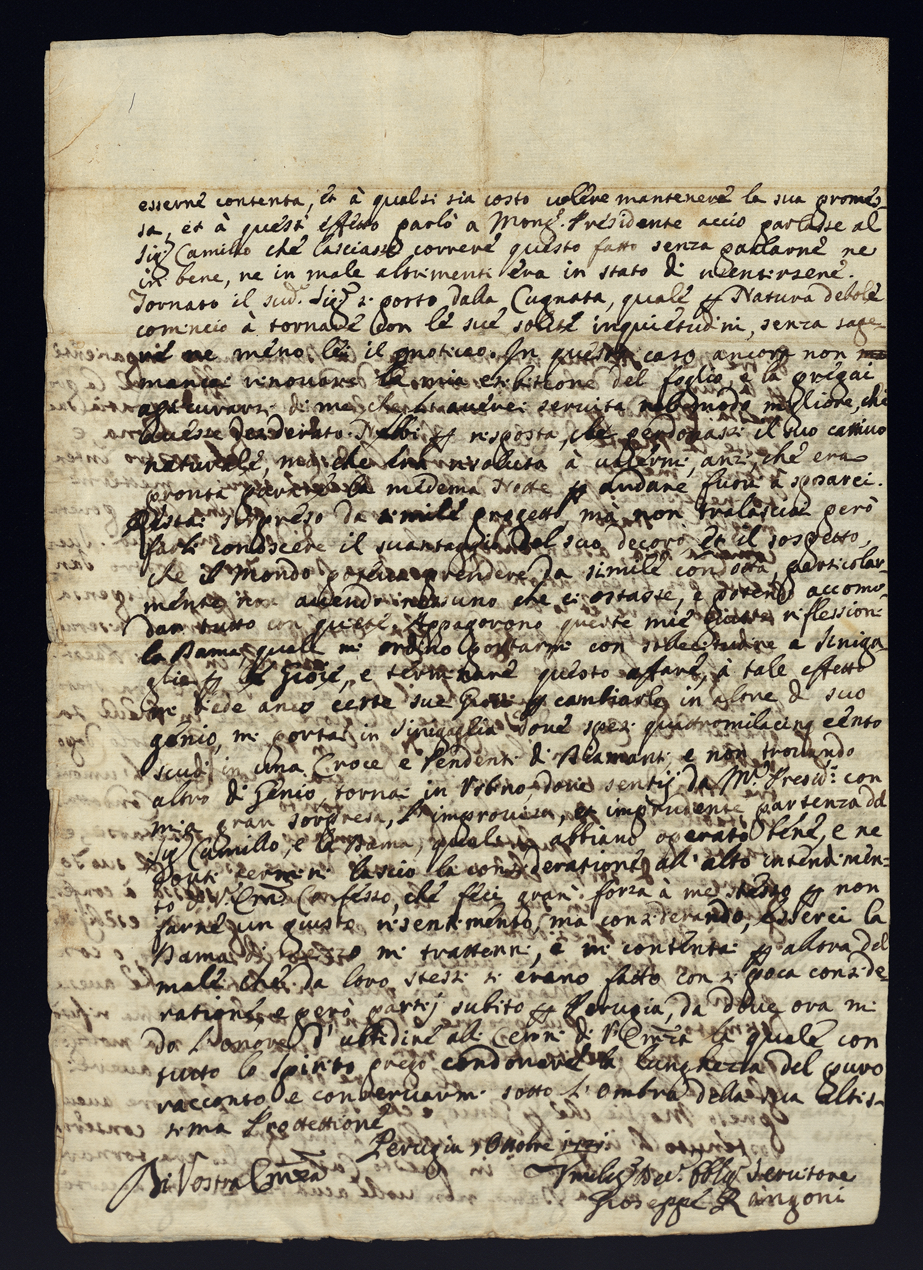 esserne contenta, et à qualsisia costo volere mantenere la sua promes-
sa, et à quest'effetto parlò a Mons.r Presidente acciò parlasse al
Sig.r Camillo che lasciasse correre questo fatto senza parlarne ne
in bene, ne in male altrimenti era in stato di risentirsene.
Tornato il sud.o Sig.r si portò dalla Cugnata, quale p Natura debole
cominciò à tornare con le sue solite inquietudini, senza
ne meno lei il motivo. In questo caso ancora non
mancai rinovare la mia esibitione del foglio, e la pregai
assicurarsi di me, che l'averei servita nel modo migliore, che
havesse desiderato. N'ebbi p risposta, che perdonassi il suo cattivo
naturale, ma che era risoluta à volermi, anzi, che era
pronta la medema Notte p andare fuori à sposarci.
Restai sorpreso da simile progetto mà non tralasciai però
farli conoscere il svantaggio del suo decoro et il sospetto,
che il Mondo poteva prendere da simile condotta particolar
mente non avendo nessuno che ci ostasse, e potendo accomo-
dar tutto con quiete. Appagorono queste mie giuste riflessioni
la Dama, quale mi ordinò portarmi con sollecitudine a Siniga-
glia p le Gioie, e terminare questo affare, à tale effetto
mi diede anco certe sue Gioie p cambiarle in altre di suo
genio, mi portai in Sinigaglia dove spesi quattromilacinq cento
scudi in una Croce e Pendenti di Diamanti, e non trovando
altro di Genio, tornai in Urbino dove sentij da M.r Presid.e con
mia gran sorpresa, l'improvisa et imprudente partenza del
Sig.r Camillo, e la Dama, quale abbiano operato bene, e ne
dovuti termini lascio la consideratione all'alto intendimen-
to di V. Em.za Confesso, che feci gran forza à me stesso p non
farne un giusto risentimento, ma considerando, esserci la
Dama di mezzo mi trattenni, e mi contentai p altra del
male che da loro stessi si erano fatto con si poca conside-
ratione, e però partij subito p Perugia, da dove ora mi
do l'onore d'ubbidire alli Cenni di V. Em.za la quale con
tutto lo spirito prego condonare la lunghezza del puro
racconto e conservarmi sotto l'ombra della sua altis-
sima Protettione
Perugia Ottobre
Di Vostra Em.za
Umiliss.o Dev.o Obblig.o Servitore
Gioseppe Rangoni